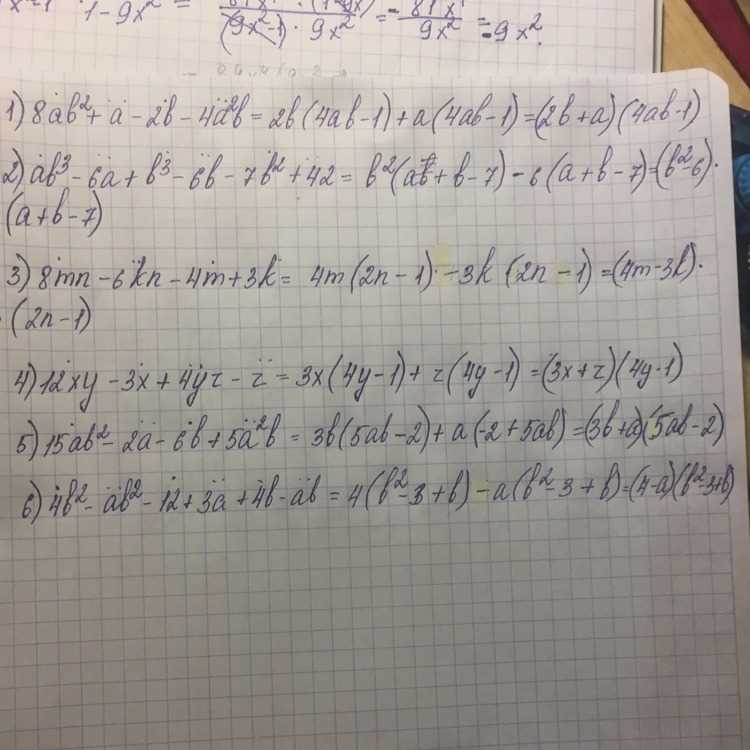 1 - 9x² = (9x²-1) · 9x² = - 81x / 9x² = -9x².
1) 8ab² + a - 2b - 4a²b = 2b(4ab-1) + a(4ab-1) = (2b+a)(4ab-1)
2) ab³ - 6a + b³ - 6b - 7b² + 42 = b²(ab + b - 7) - 6(a + b - 7) = (b²-6)·
(a + b - 7)
3) 8mn - 6kn - 4m + 3k = 4m(2n - 1) - 3k(2n - 1) = (4m-3k)·
· (2n-1)
4) 12xy - 3x + 4yz - z = 3x(4y-1) + z(4y-1) = (3x+z)(4y-1)
5) 15ab² - 2a - 6b + 5a²b = 3b(5ab-2) + a(-2+5ab) = (3b+a)(5ab-2)
6) 4b² - ab² - 12 + 3a + 4b - ab = 4(b²-3+b) - a(b²-3+b) = (4-a)(b²-3+b)